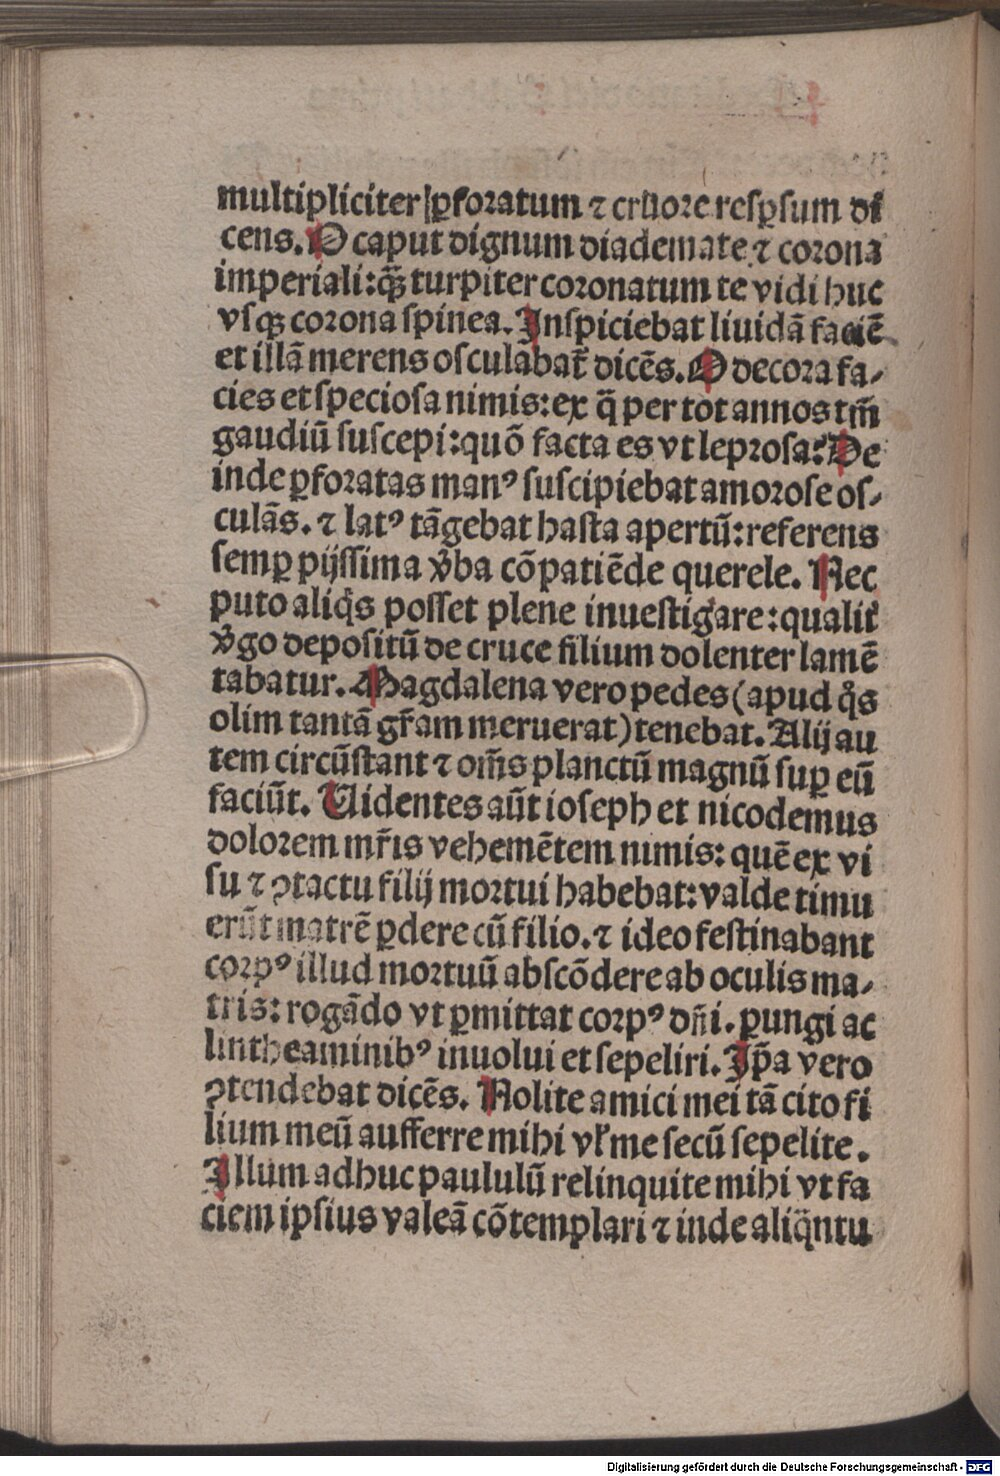 multipliciter ꝑforatum ⁊ cruore reſꝑſum di
cens. O caput dignum diademate ⁊ corona
imperiali: q̃ꝫ turpiter coronatum te vidi huc
vſqꝫ corona ſpinea. Inſpiciebat liuidã faciẽ
et illã merens oſculabat̃ dicẽs. O decora fa⸗
cies et ſpecioſa nimis: ex q̃ per tot annos tm̃
gaudiũ ſuſcepi: quõ facta es vt leproſa? De
inde ꝑforatas manꝰ ſuſcipiebat amoroſe oſ⸗
culãs. ⁊ latꝰ tãgebat haſta apertũ: referens
ſemꝑ pijſſima v̉ba cõpatiẽde querele. Nec
puto aliq̉s poſſet plene inueſtigare: qualit̉
v̉go depoſitũ de cruce filium dolenter lamẽ
tabatur. Magdalena vero pedes (apud q̉s
olim tantã gr̃am meruerat) tenebat. Alij au
tem circũſtant ⁊ om̃s planctũ magnũ ſuꝑ eũ
faciũt. Uidentes aũt ioſeph et nicodemus
dolorem mr̃is vehemẽtem nimis: quẽ ex vi
ſu ⁊ ↄtactu filij mortui habebat: valde timu
erũt matrẽ ꝑdere cũ filio. ⁊ ideo feſtinabant
corpꝰ illud mortuũ abſcõdere ab oculis ma⸗
tris: rogãdo vt ꝑmittat corpꝰ dñi. ꝑungi ac
lintheaminibꝰ inuolui et ſepeliri. Ip̃a vero
ↄtendebat dicẽs. Nolite amici mei tã cito fi
lium meũ aufferre mihi vl̉ me ſecũ ſepelite.
Illum adhuc paululũ relinquite mihi vt fa
ciem ipſius valeã cõtemplari ⁊ inde aliq̃ntu
Digitalisierung gefördert durch die Deutsche Forschungsgemeinschaft - DFG